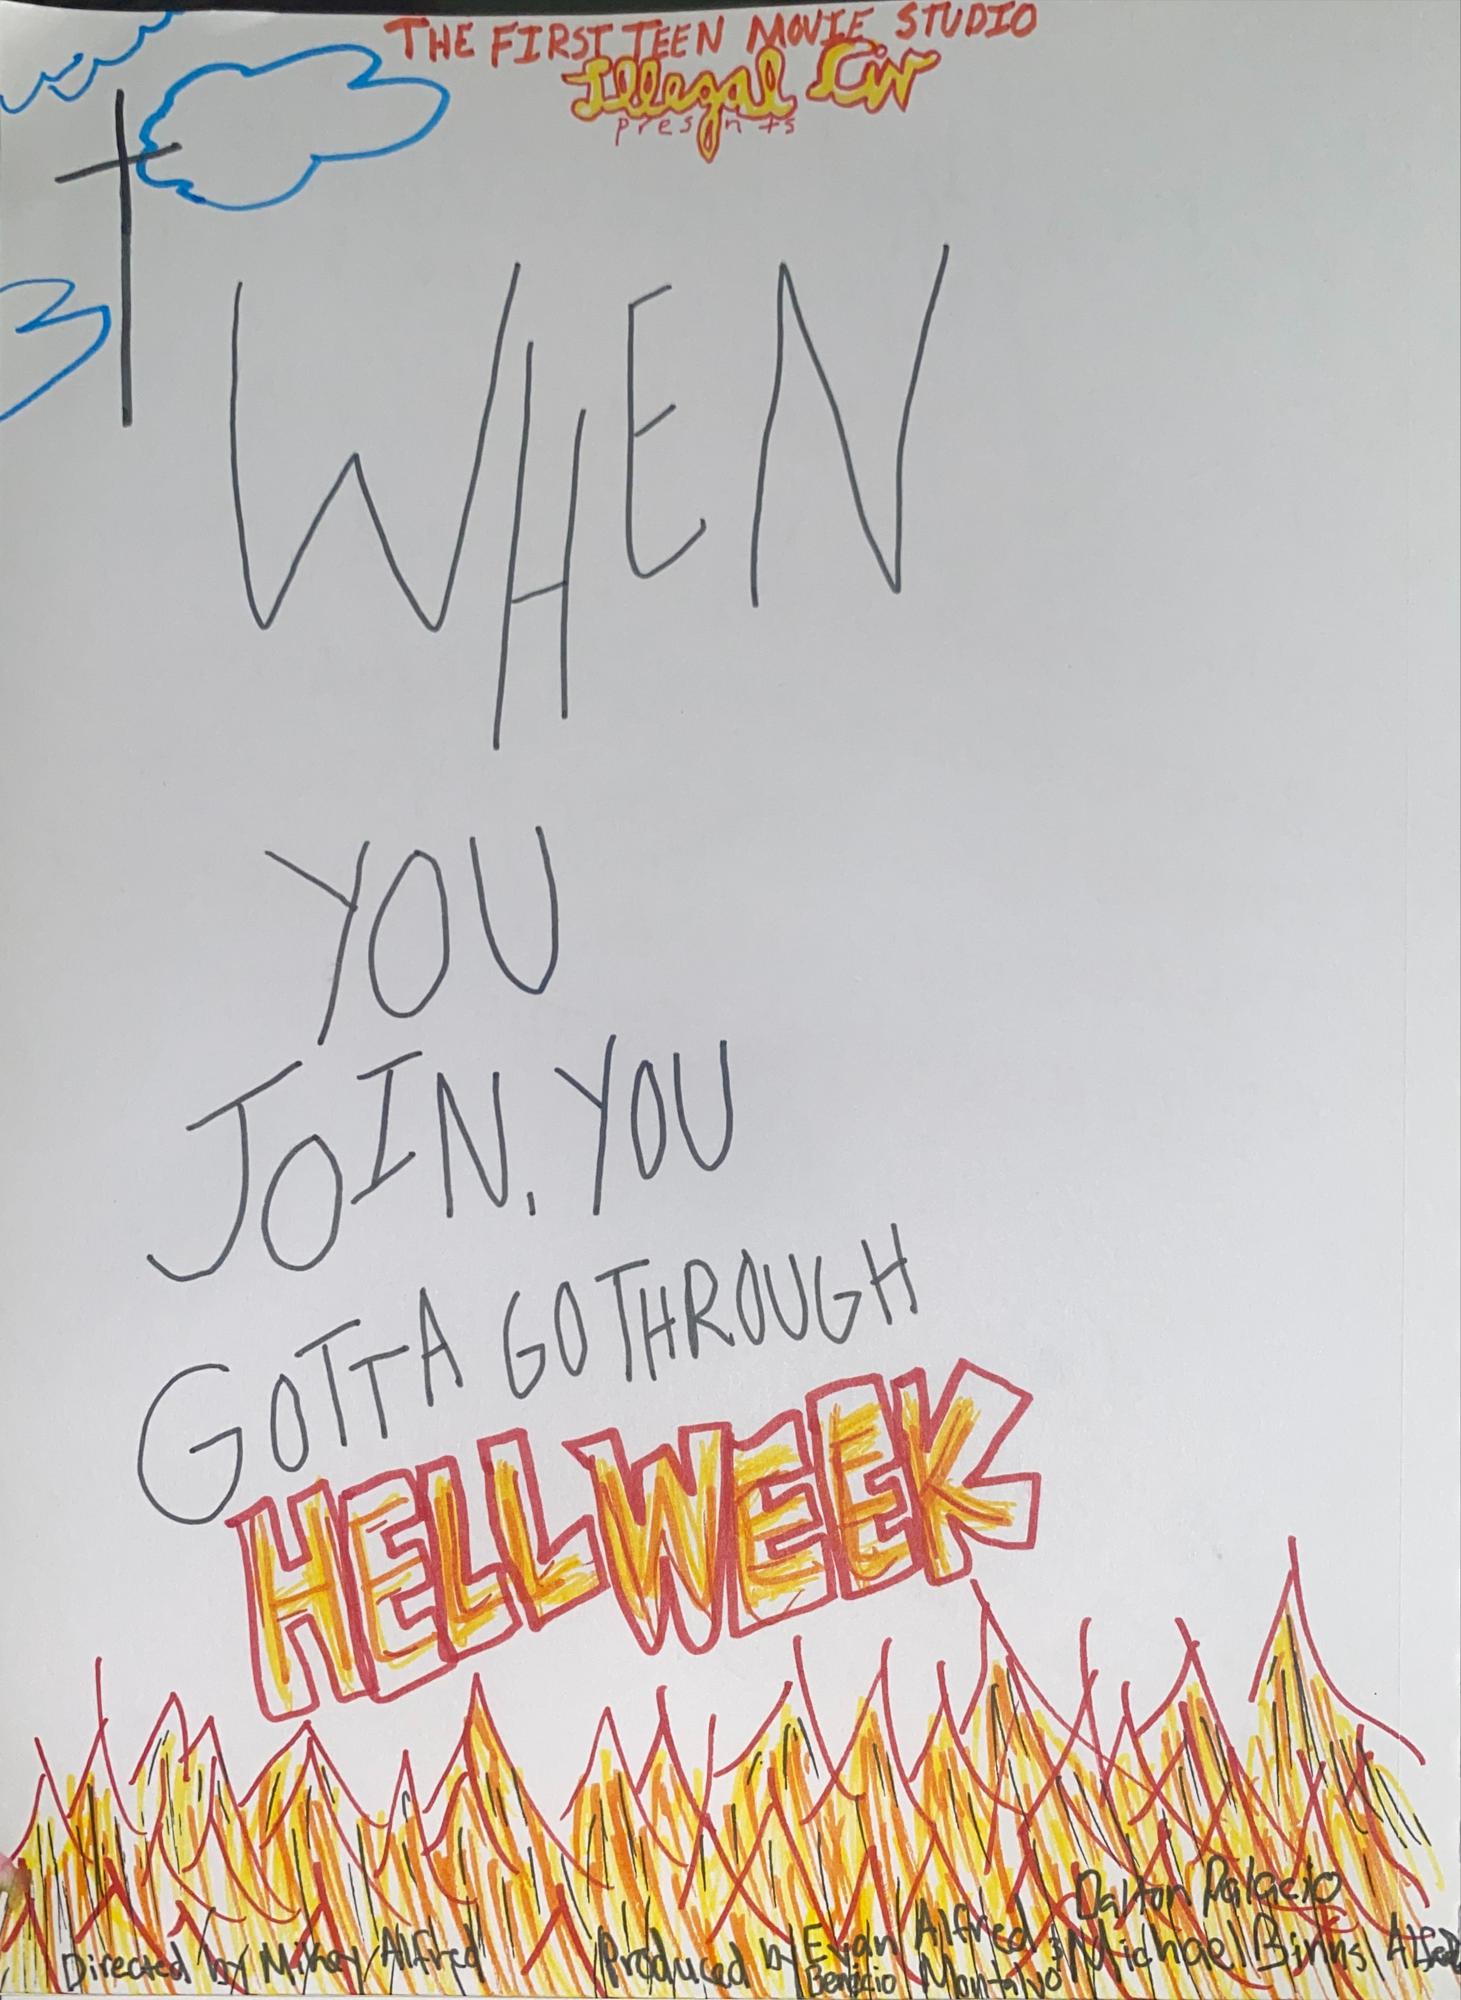 THE FIRST TEEN MOVIE STUDIO
Illegal Civ
presents
WHEN
YOU
JOIN, YOU
GOTTA GO THROUGH
HELLWEEK
Dalton Palacio
Directed by Mikey Alfred
Produced by Evan Alfred & Michael Binns Alfred
Benicio Montalvo